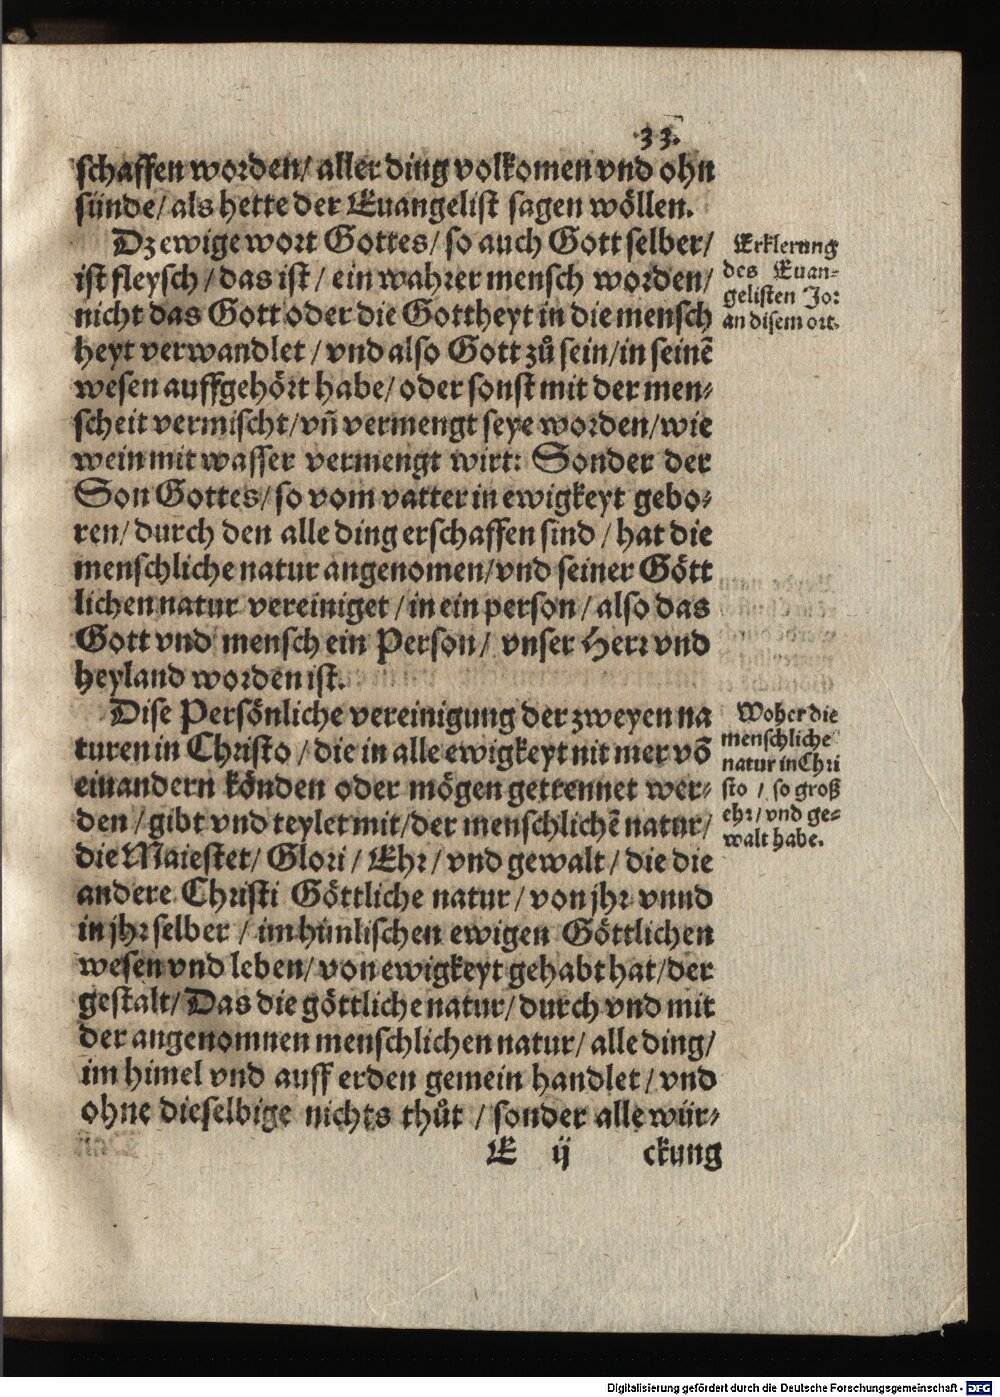 33.
schaffen worden/ aller ding volkomen vnd ohn
sünde/ als hette der Euangelist sagen wöllen.
Dz ewige wort Gottes/ so auch Gott selber/
ist fleysch/ das ist/ ein wahrer mensch worden/
nicht das Gott oder die Gottheyt in die mensch
heyt verwandlet/ vnd also Gott zů sein/ in seinẽ
wesen auffgehört habe/ oder sonst mit der men⸗
scheit vermischt/ vñ vermengt seye worden/ wie
wein mit wasser vermengt wirt: Sonder der
Son Gottes/ so vom vatter in ewigkeyt gebo⸗
ren/ durch den alle ding erschaffen sind/ hat die
menschliche natur angenomen/ vnd seiner Gött
lichen natur vereiniget/ in ein person/ also das
Gott vnd mensch ein Person/ vnser Herr vnd
heyland worden ist.
Erklerung
des Euan⸗
gelisten Jo:
an disem ort.
Dise Persönliche vereinigung der zweyen na
turen in Christo/ die in alle ewigkeyt nit mer võ
einandern könden oder mögen getrennet wer⸗
den/ gibt vnd teylet mit/ der menschlichẽ natur/
die Maiestet/ Glori/ Ehr/ vnd gewalt/ die die
andere Christi Göttliche natur/ von jhr vnnd
in jhr selber/ im himlischen ewigen Göttlichen
wesen vnd leben/ von ewigkeyt gehabt hat/ der
gestalt/ Das die göttliche natur/ durch vnd mit
der angenomnen menschlichen natur/ alle ding/
im himel vnd auff erden gemein handlet/ vnd
ohne dieselbige nichts thůt/ sonder alle wür⸗
Woher die
menschliche
natur in Chri
sto/ so groß
ehr/ vnd ge⸗
walt habe.
E ij ckung
Digitalisierung gefördert durch die Deutsche Forschungsgemeinschaft - DFG